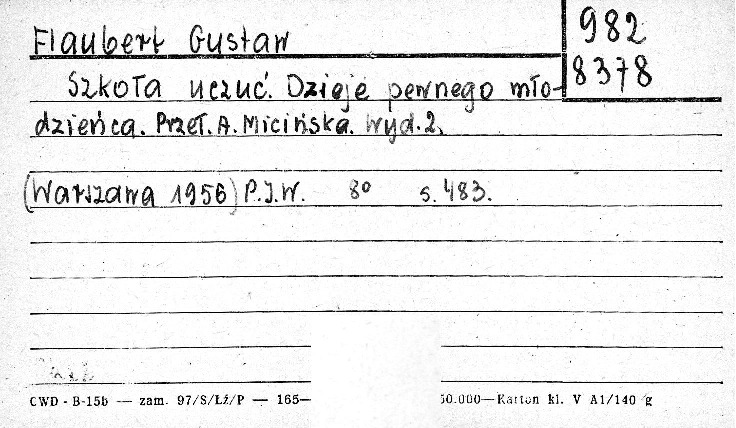 Flaubert Gustaw
982
8378
Szkoła uczuć. Dzieje pewnego mło-
dzieńca. Przeł. A. Micińska. Wyd. 2.
(Warszawa 1956) P.I.W. 8º s. 483.
CWD - B-15b — zam. 97/S/Łź/P — 165— 50.000—Karton kl. V A1/140 g